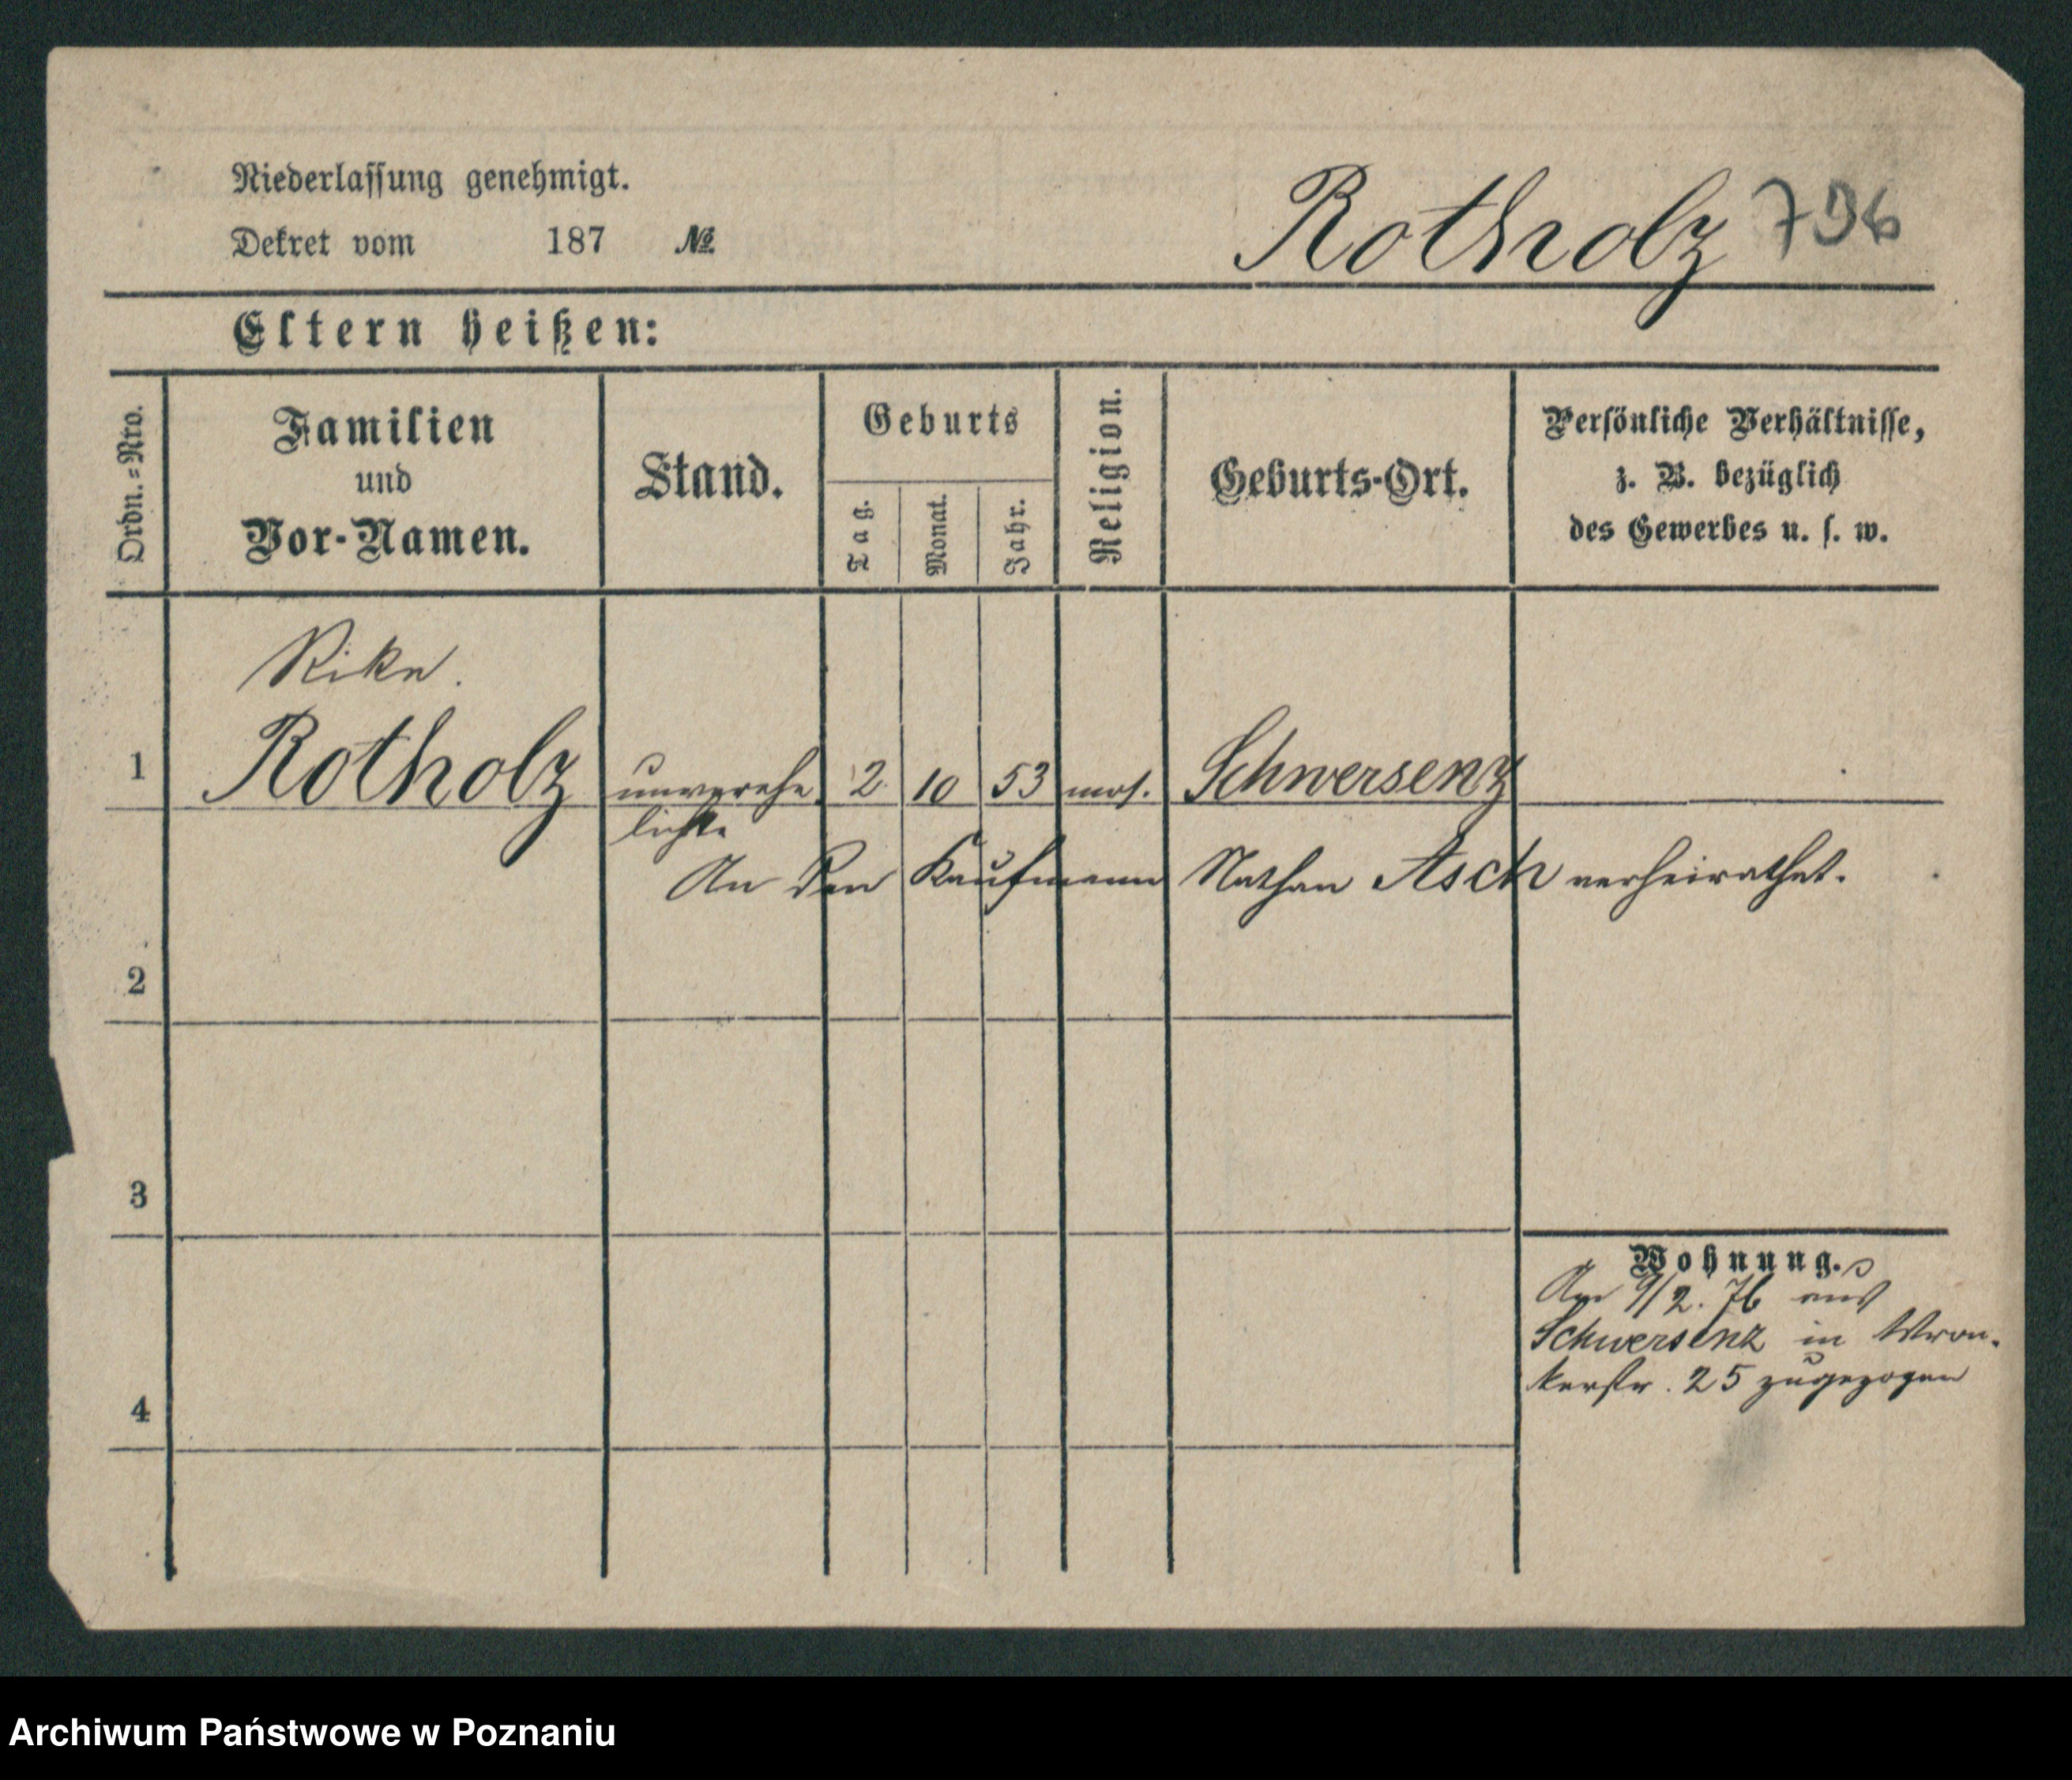 Niederlassung genehmigt.
Dekret vom 187 №
Rotholz 796
Eltern heißen:
Ordn.=Nro.
Familien
und
Vor-Namen.
Stand.
Geburts
Tag.
Monat.
Jahr.
Religion.
Geburts-Ort.
Persönliche Verhältnisse,
z. B. bezüglich
des Gewerbes u. s. w.
Rike.
1 Rotholz unverehe 2. 10 53 mos. Schwersenz
lichte
An den Kaufmann Nathan Asch verheirathet.
2
3
Wohnung.
Am 9/2. 76 aus
Schwersenz in Wron-
4 kerstr. 25 zugezogen
Archiwum Państwowe w Poznaniu